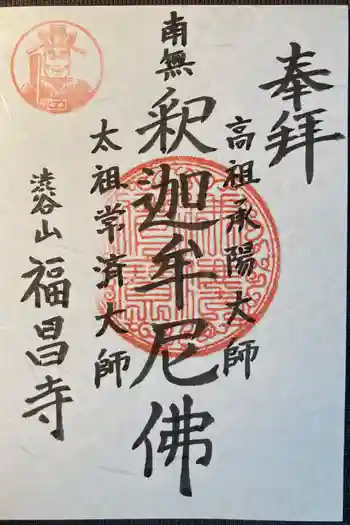 奉拝
高祖承陽大師
南無
釈迦牟尼佛
太祖常済大師
澁谷山
福昌寺